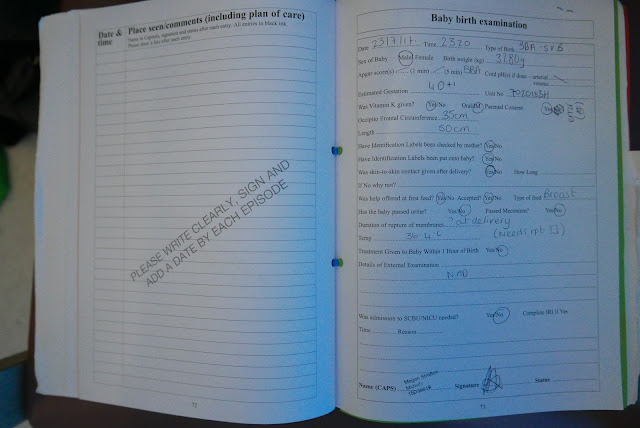 Date & time
Place seen/comments (including plan of care)
Name in Capitals, signature and status after each entry. All entries in black ink
Please draw a line after each entry
PLEASE WRITE CLEARLY, SIGN AND
ADD A DATE BY EACH EPISODE
72
Baby birth examination
Date 23/7/17 Time 2320 Type of Birth BBA - SVB
Sex of Baby Male/Female Birth weight (kg) 3280g
Apgar score(s) (1 min) (5 min) BBA Cord pH(s) if done – arterial
venous
Estimated Gestation 40+1 Unit No
Was Vitamin K given? Yes/No Oral/IM Parental Consent Yes/No
Occipito Frontal Circumference 35cm
Length 50cm
Have Identification Labels been checked by mother? Yes/No
Have Identification Labels been put onto baby? Yes/No
Was skin-to-skin contact given after delivery? Yes/No How Long
If No why not?
Was help offered at first feed? Yes/No Accepted? Yes/No Type of feed Breast
Has the baby passed urine? Yes/No Passed Meconium? Yes/No
Duration of rupture of membranes ? at delivery
Temp 36.4°c (Needs rpt
Treatment Given to Baby Within 1 Hour of Birth Yes/No
Details of External Examination
NAD
Was admission to SCBU/NICU needed? Yes/No Complete IR1 if Yes
Time Reason
Name (CAPS) Signature Status
73